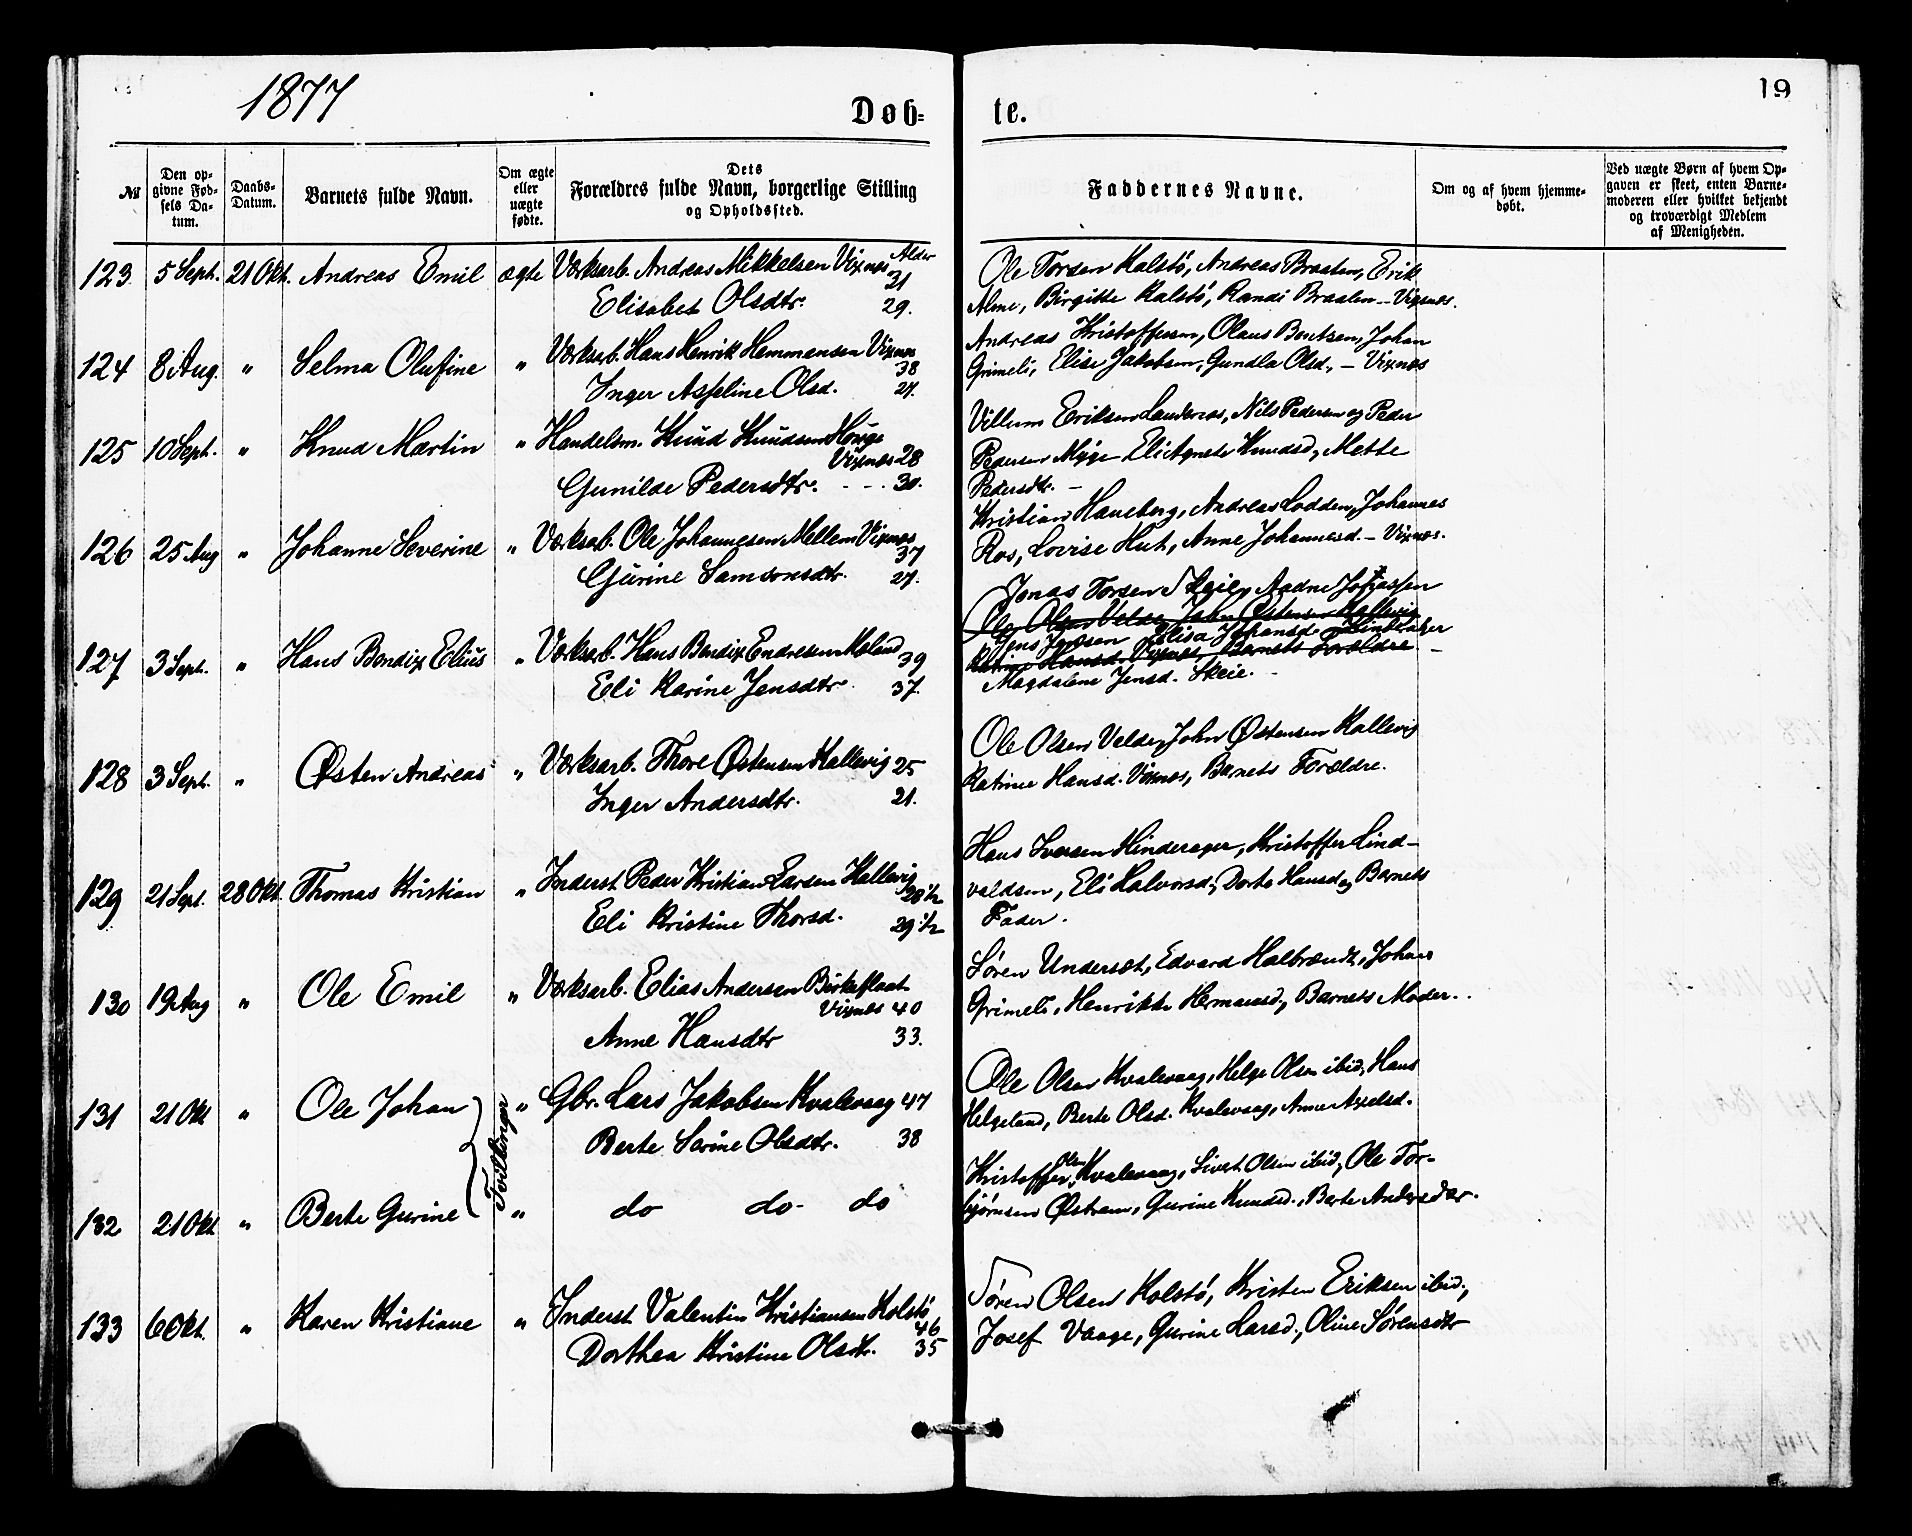 1877
Døb=
te.
19
№
Den op-
givne Fød-
sels Da-
tum.
Daabs-
Datum.
Barnets fulde Navn.
Om ægte
eller
uægte
fødte.
Dets
Forældres fulde Navn, borgerlige Stilling
og Opholdssted.
Faddernes Navne.
Om og af hvem hjemme-
døbt.
Ved uægte Børn af hvem Op-
gaven er skeet, enten Barne-
moderen eller hvilket bekjendt
og troværdigt Medlem
af Menigheden.
123 5 Sept. 21 Okt. Andreas Emil ægte Værksarb. Andreas Mikkelsen Vixnæs Alder 31
Elisabet Olsdtr. 29.
Ole Torsen Kalstö, Andreas Braaten, Erik
Alme, Birgitte Kalstö, Randi Braaten - Vixnæs.
124 8 Aug. " Selma Olufine " Værksab. Hans Henrik Hemmensen Vixnæs 38
Inger Asseline Olsd. 27.
Andreas Kristoffersen, Olaus Bentsen, Johan
Grimeli, Elise Jakobsen, Gundla Olsd., - Vixnæs
125 10 Sept. " Knud Martin " Handelsm. Knud Knudsen Hauge
Vixnæs 28
Gunilde Pedersdtr. - - - 30.
Villum Eriksen Landeraas, Nils Pedersen og Peder
Pedersen Myge Eli Agnete Knudsd, Mette
Pedersdtr. -
126 25 Aug " Johanne Severine " Værksab. Ole Johannesen Mellem Vixnæs 37
Gurine Samsonsdtr. 27.
Kristian Haneberg, Andreas Lodden, Johannes
Ros, Lovise Hut, Anne Johannesd. - Vixnæs.
127 3 Sept. " Hans Bendix Elius " Værksab. Hans Bendix Endresen Meland 39
Eli Karine Jensdtr. 37.
Jonas Torsen Skeie, Aadne
Ole Olsen Velde, John Østensen Kallevig
Jens Jensen Elisa Johansd. Hinderaker
Katrine Hansd. Vixnæs, Barnets Forældre. -
Magdalene Jensd. Skeie. -
128 3 Sept. " Østen Andreas " Værksarb. Thore Østensen Kallevig 25
Inger Andersdtr. 21.
Ole Olsen Velde, John Østensen Kallevig
Katrine Hansd. Vixnæs, Barnets Forældre.
129 21 Sept. 28 Okt. Thomas Kristian " Inderst Peder Kristian Larsen Kallevig 28 ½
Eli Kristine Thorsd. 29 ½
Hans Iversen Hinderager, Kristoffer Lind-
valdsen, Eli Halvorsd., Dorte Hansd og Barnets
Fader.
130 19 Aug " Ole Emil " Værksarb. Elias Andersen Birkeflaat
Vixnæs 40
Anne Hansdtr 33.
Sören Undersæt, Edvard Halbrændt, Johan
Grimeli, Henrikke Hermansd, Barnets Moder.
131 21 Okt " Ole Johan " Gbr. Lars Jakobsen Kvalevaag 47
Berte Serine Olsdtr. 38
Tvillinger
Ole Olsen Kvalevaag, Helge Olsen ibid, Hans
Helgeland, Berte Olsd. Kvalevaag, Anne Axelsd.
132 21 Okt " Berte Gurine " do do do
Kristoffer Olsen Kvalevaag, Sivert Olsen ibid, Ole Tor-
björnsen Østrem, Gurine Knudsd., Berte Andersdtr.
133 6 Okt. " Karen Kristiane " Inderst Valentin Kristiansen Kolstö 46
Dorthea Kristine Olsdtr. 35
Sören Olsen Kolstö, Kristen Eriksen ibid,
Josef Vaage, Gurine Larsd., Oline Sörensdtr